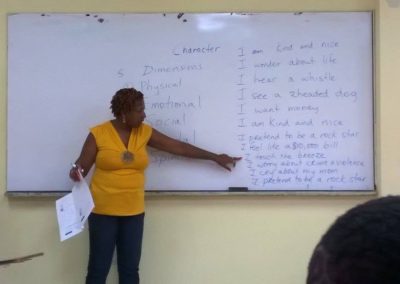 Character
5 Dimensions
Physical
Emotional
Social
I am kind and nice
I wonder about life
I hear a whistle
I see a 2headed dog
I want money
I am kind and nice
I pretend to be a rock star
I feel like a $10,000 bill
I touch the breeze
I worry about crime & violence
I cry about my mom
I pretend to be a rock star